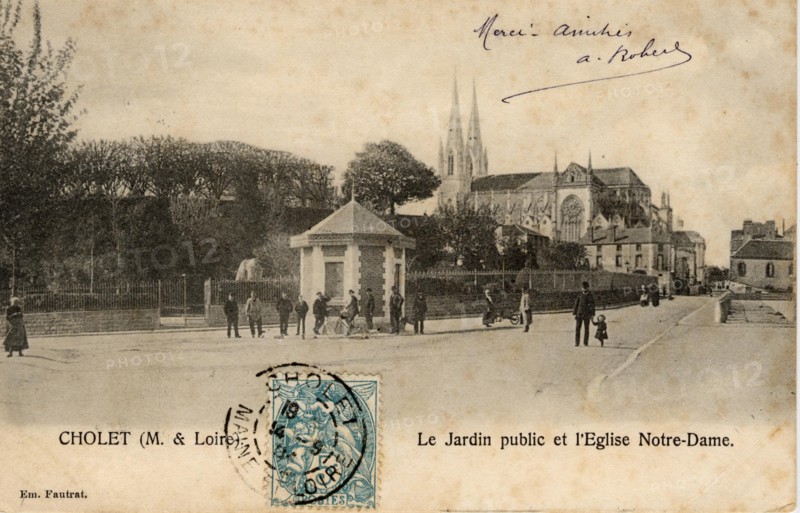 Merci - Amitiés
a. Robert
CHOLET (M. & Loire)
Le Jardin public et l'Eglise Notre-Dame.
CHOLET
MAINE
LOIRE
POSTES
Em. Fautrat.
PHOTO12